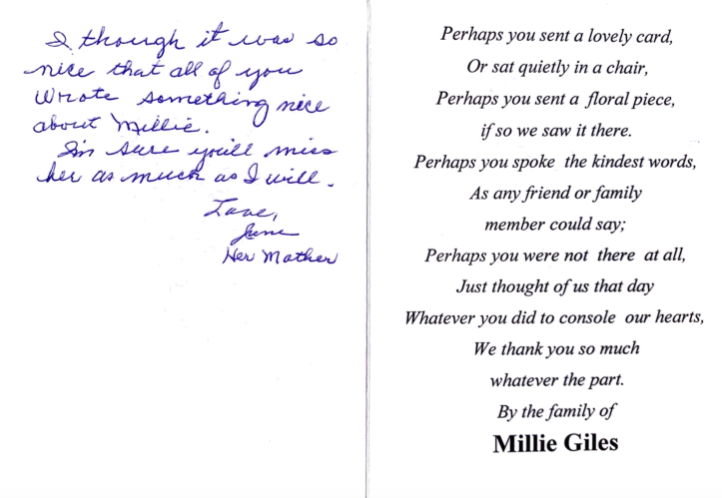 I though it was so
nice that all of you
wrote something nice
about Millie.
I'm sure you'll miss
her as much as I will.
Love,
June
Her Mother
Perhaps you sent a lovely card,
Or sat quietly in a chair,
Perhaps you sent a floral piece,
if so we saw it there.
Perhaps you spoke the kindest words,
As any friend or family
member could say;
Perhaps you were not there at all,
Just thought of us that day
Whatever you did to console our hearts,
We thank you so much
whatever the part.
By the family of
Millie Giles